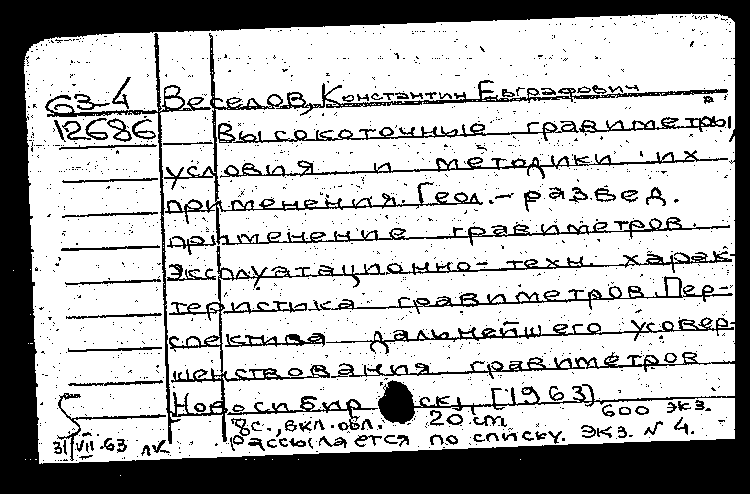 63-4 Веселов, Константин Евграфович
12686 Высокоточные гравиметры,
условия и методики их
применения. Геол.-развед.
применение гравиметров.
Эксплуатационно-техн. харак-
теристика гравиметров. Пер-
спектива дальнейшего усовер-
шенствования гравиметров
Новосибирск, [1963]
8с., вкл. обл. 20 cm 600 экз.
31/VII.63 лк Рассылается по списку. Экз. N 4.